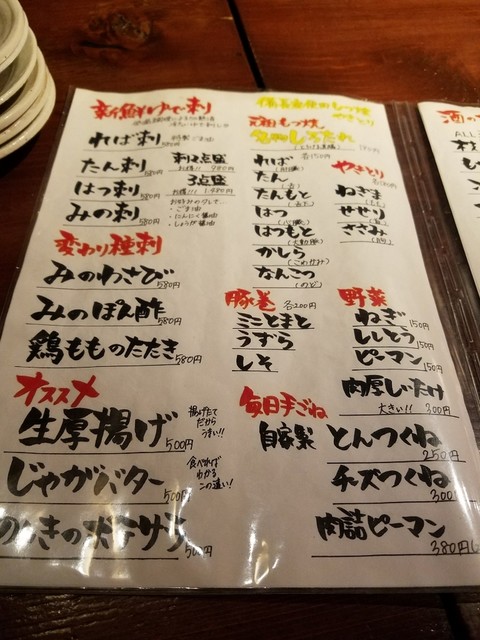 新鮮ゆで刺
れば刺 580円
たん刺 580円
はつ刺 580円
みの刺 580円
刺2点盛
お得!! 980円
3点盛
お得!! 1,480円
お好みのタレで
・ごま油
・にんにく醤油
・しょうが醤油
変わり種刺
みのわさび 580円
みのぽん酢 580円
鶏もものたたき 580円
オススメ
生厚揚げ 500円
揚げたて
だから
うまい!!
じゃがバター 500円
食べれば
わかる
この違い!
のんきのポテサラ 500円
備長炭使用もつ焼
やきとり
元祖もつ焼
名物しろたれ
各150円
れば
たん
たんもと
はつ
はつもと
かしら
(こめかみ)
なんこつ
(のど)
やきとり
ねぎま
せせり
ささみ
豚巻 各200円
ミニとまと
うずら
しそ
野菜
ねぎ 150円
ししとう 150円
ピーマン 150円
肉厚しいたけ
大きい!! 300円
毎日手ごね
自家製 とんつくね
250円
チーズつくね
300
肉詰ピーマン
380円
酒の